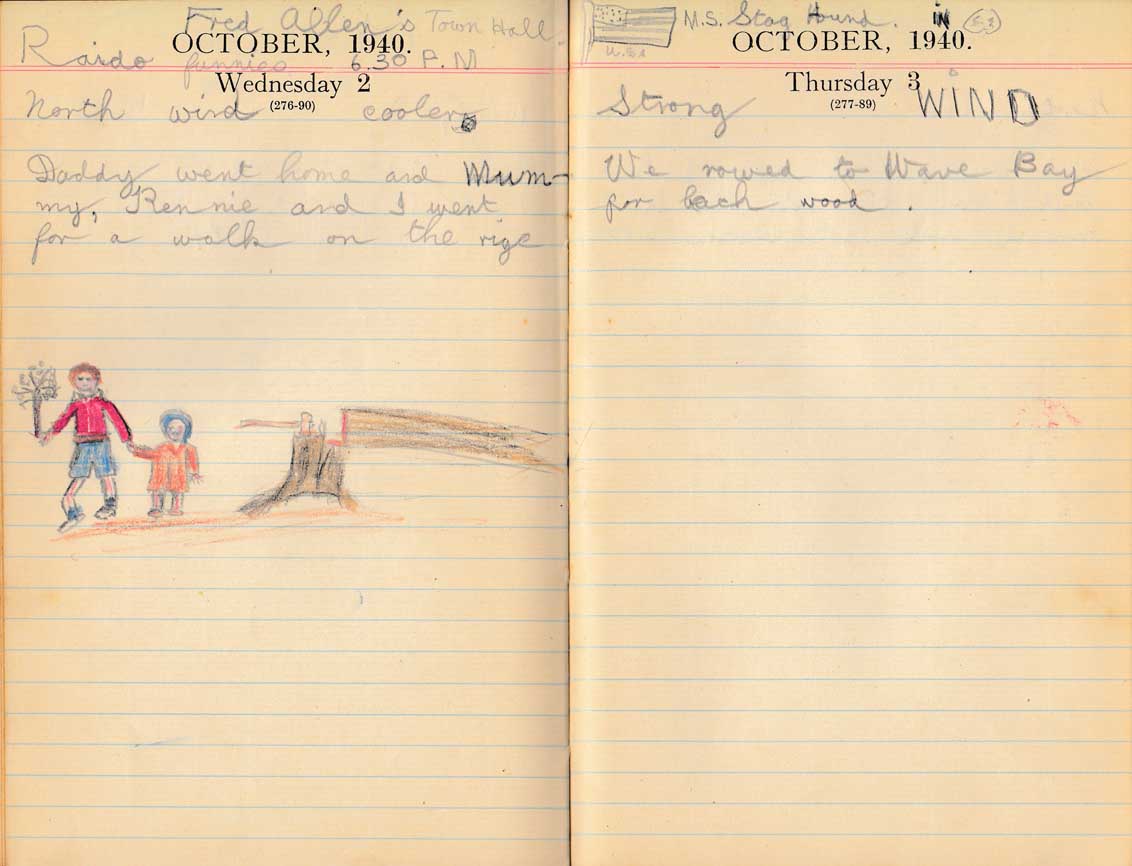 Fred Allen's Town Hall
OCTOBER, 1940.
Raido funnies 6.30 P.M
Wednesday 2
(276-90)
North wind cooler
Daddy went home and Mum-
my, Rennie and I went
for a walk on the rige
U.S.A
M.S. Stag Hound. IN
OCTOBER, 1940.
Thursday 3
(277-89)
Strong WIND
We rowed to Wave Bay
for back wood .